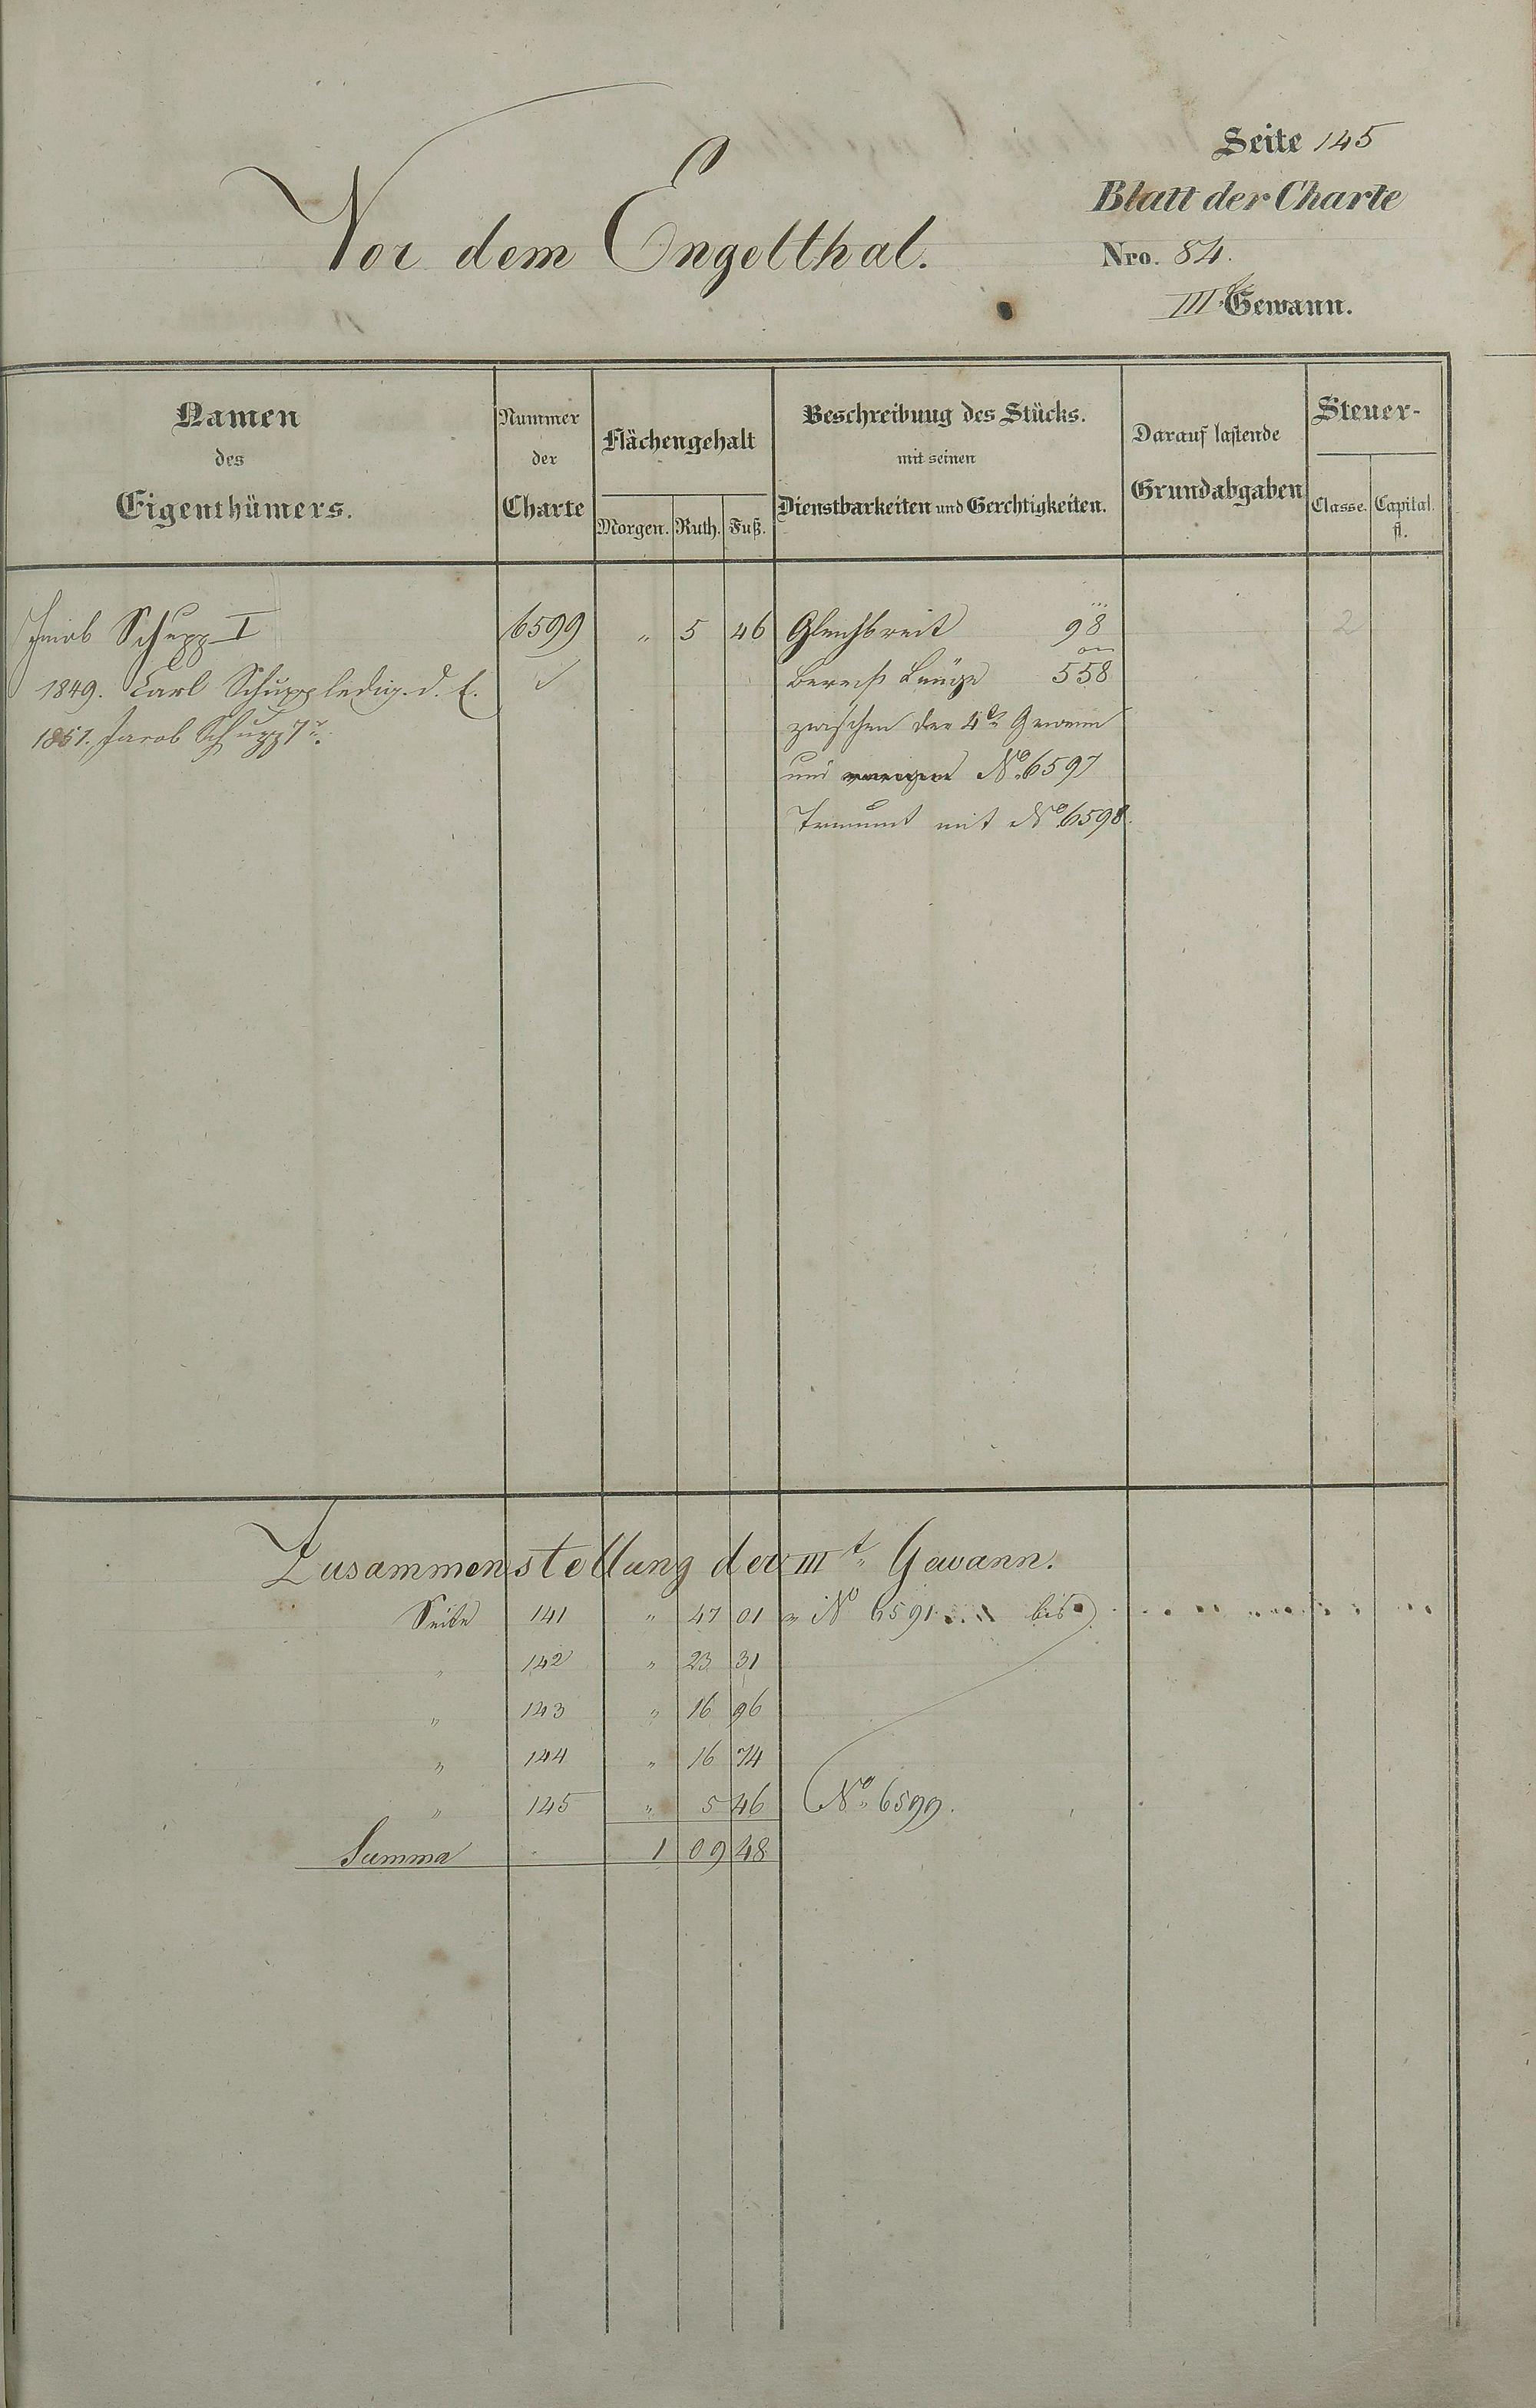 Seite 145
Blatt der Charte
Vor dem Engelthal.
Nro. 84.
III.te Gewann.
Namen des Eigenthümers.
Nummer der Charte
Flächengehalt
Morgen. Ruth. Fuß.
Beschreibung des Stücks. mit seinen Dienstbarkeiten und Gerechtigkeiten.
Darauf lastende Grundabgaben
Steuer-
Classe. Capital. fl.
Jacob Schupp I 6599 " 5 46 Gleichbreit 98 2
1849. Carl Schupp ledig. d. E. Länge 558
1851. Jacob Schupp 7r. zwischen der 4te Gewann
und No. 6597
mit No. 6598.
Zusammenstellung der III t. Gewann.
Seite 141 " 47 01 " No 6591 bis
" 142 " 23 31
" 143 " 16 96
" 144 " 16 74
" 145 " 5 46 No. 6599.
Summa 1 09 48